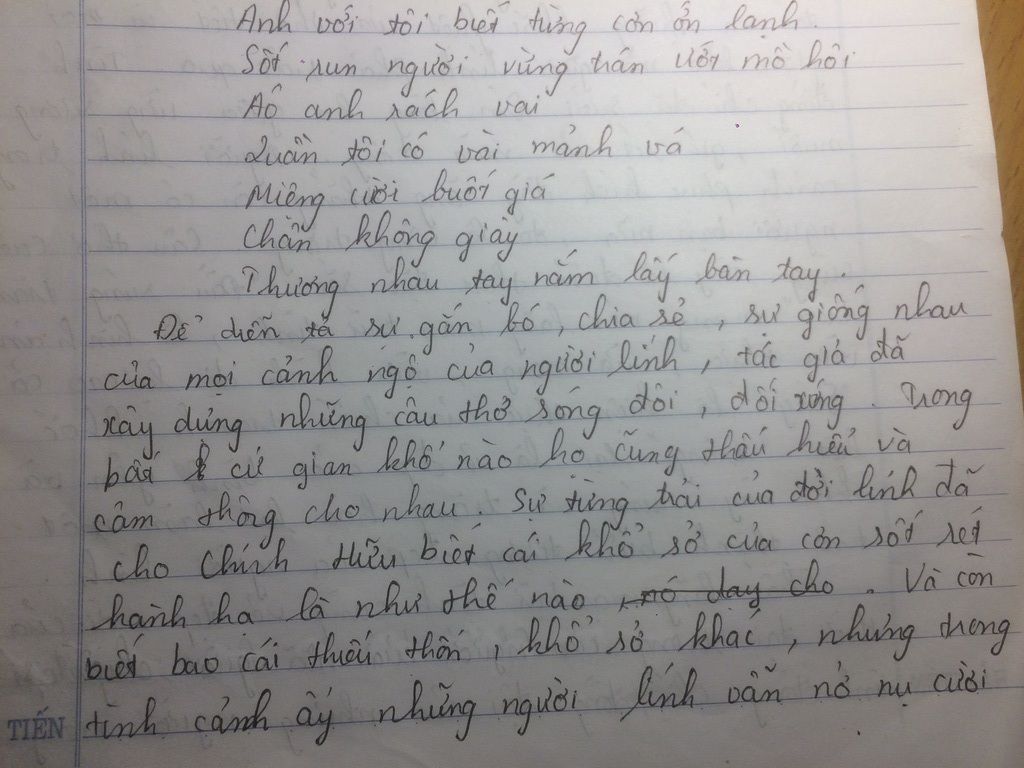 Anh với tôi biết từng cơn ớn lạnh.
Sốt run người vừng trán ướt mồ hôi
Aó anh rách vai
Quần tôi có vài mảnh vá
Miệng cười buốt giá
Chân không giày
Thương nhau tay nắm lấy bàn tay.
Để diễn tả sự gắn bó, chia sẻ, sự giống nhau
của mọi cảnh ngộ của người lính, tác giả đã
xây dựng những câu thơ sóng đôi, đối xứng. Trong
bất cứ gian khổ nào họ cũng thấu hiểu và
cảm thông cho nhau. Sự từng trải của đời lính đã
cho Chính Hữu biết cái khổ sở của cơn sốt rét
hành hạ là như thế nào, nó day cho. Và còn
biết bao cái thiếu thốn, khổ sở khác, nhưng trong
TIẾN tình cảnh ấy những người lính vẫn nở nụ cười